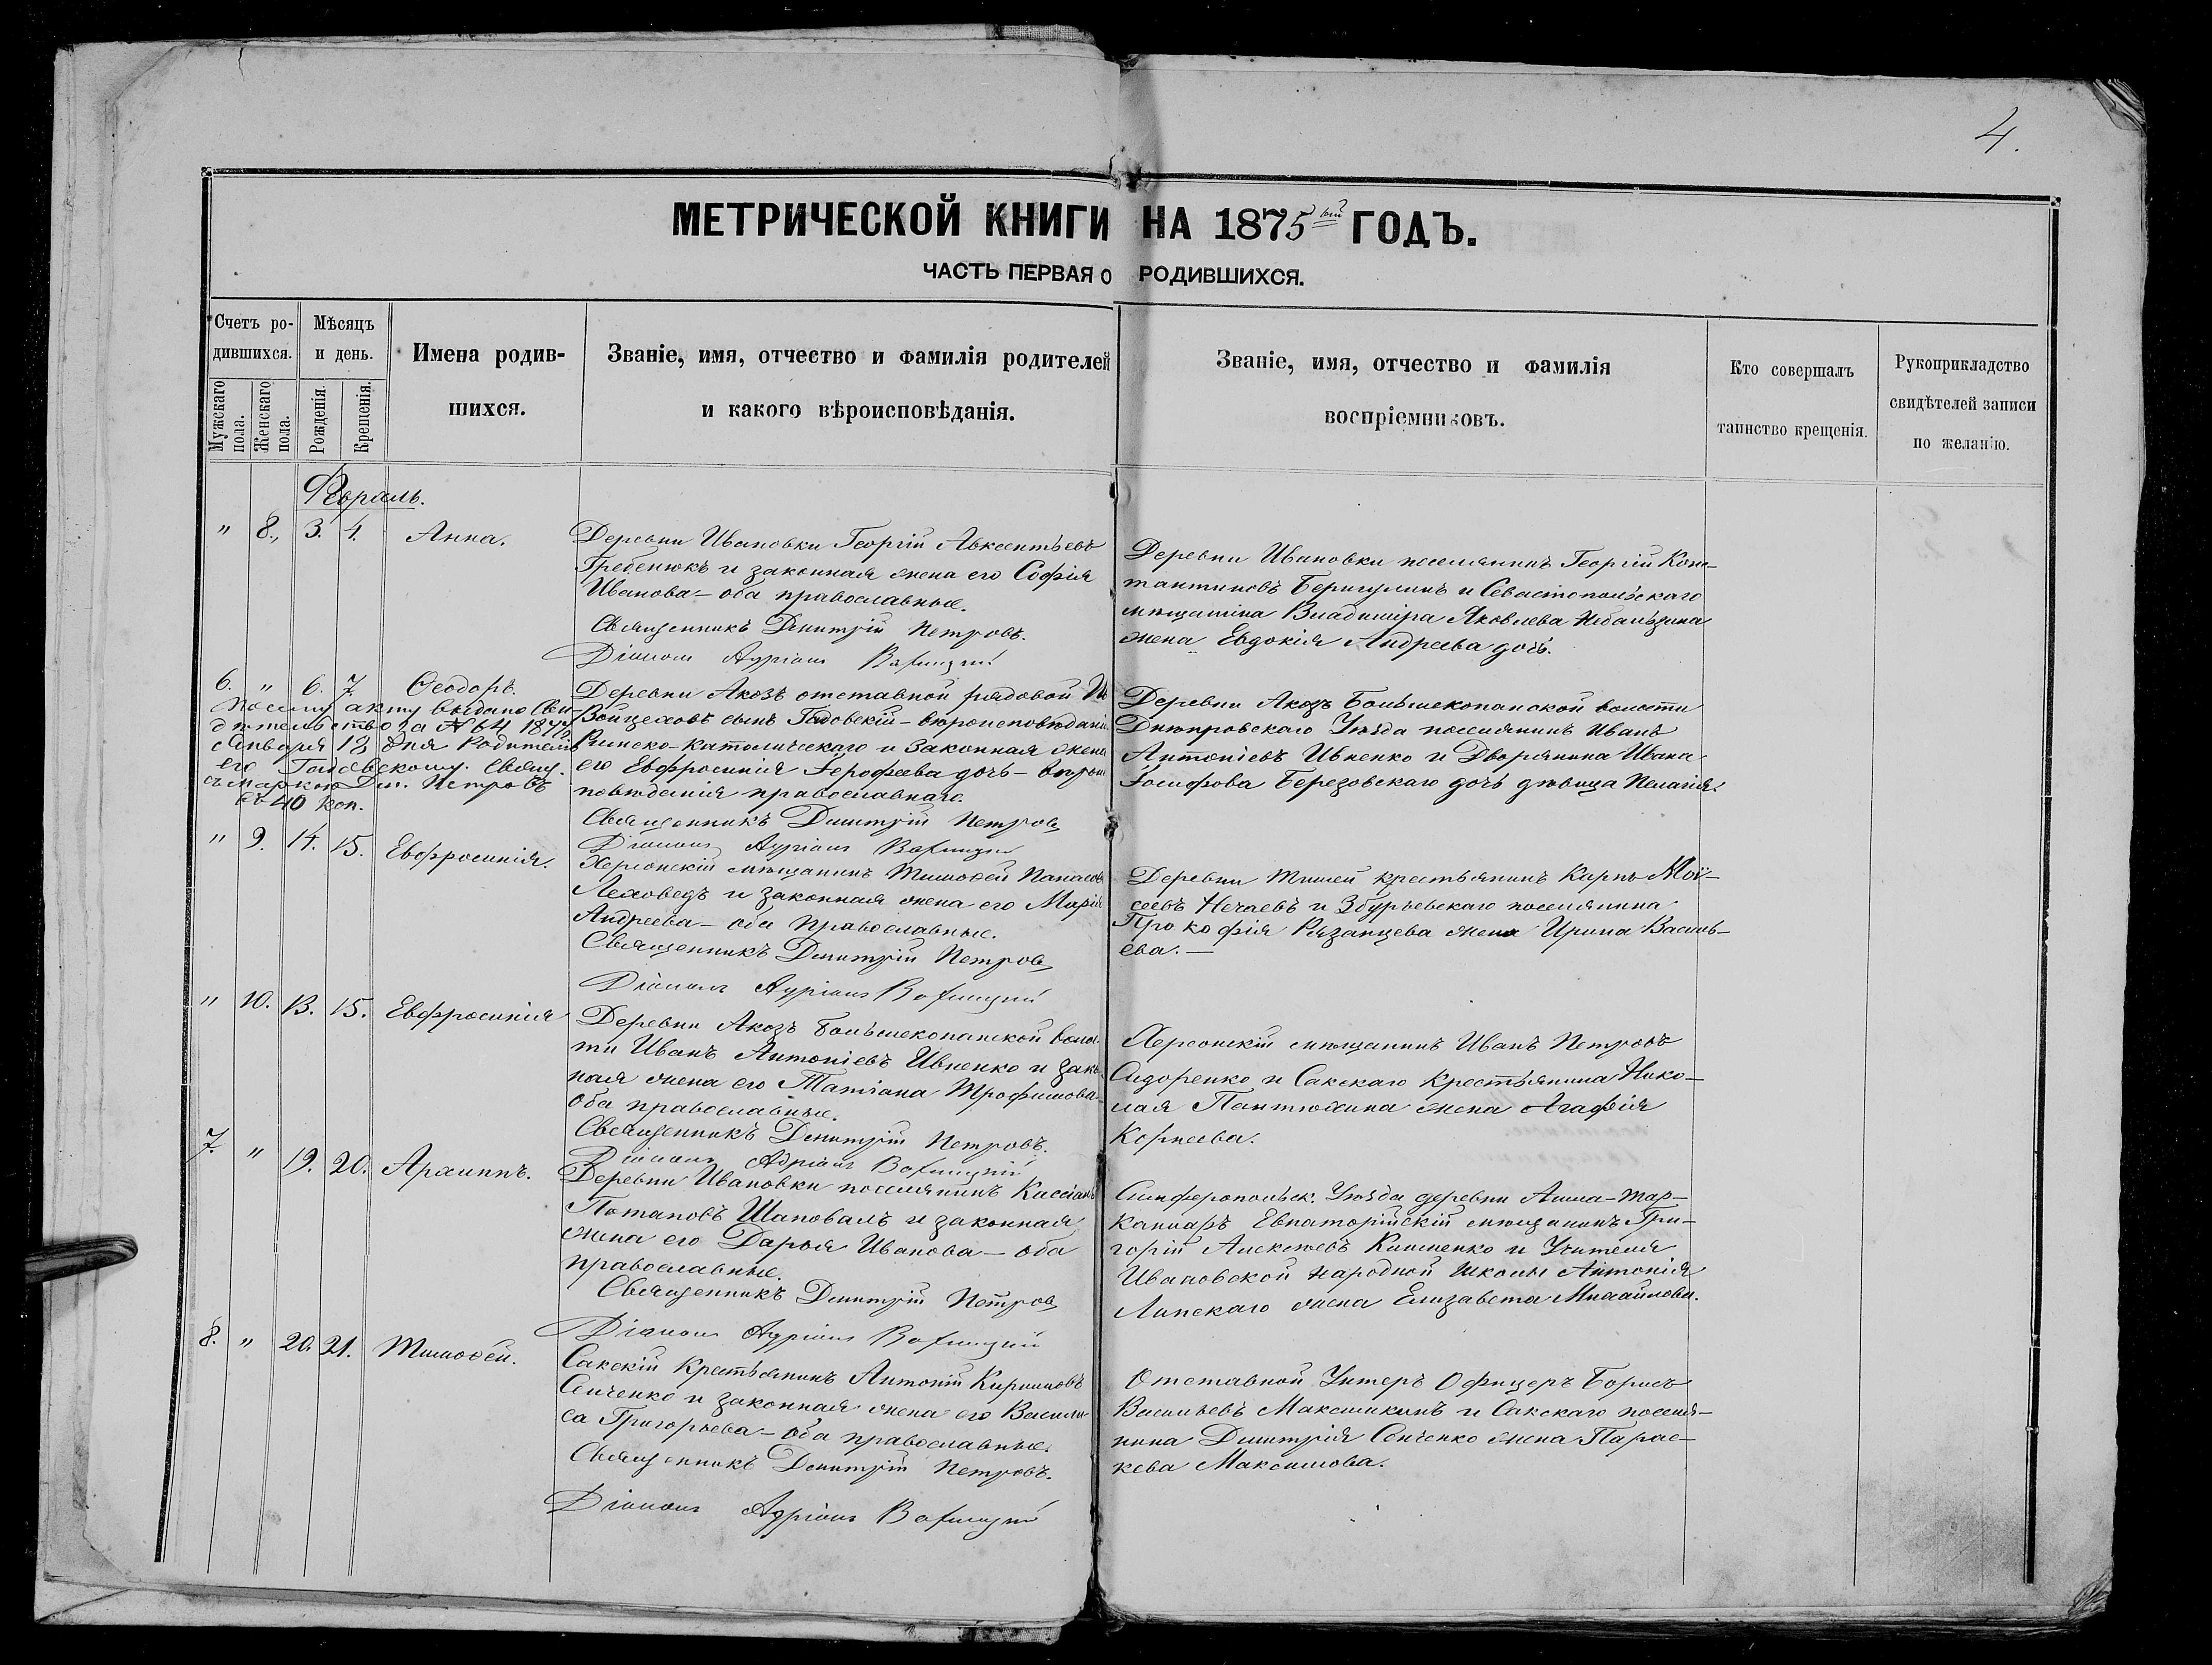 4.
МЕТРИЧЕСКОЙ КНИГИ НА 1875ый ГОДЪ.
ЧАСТЬ ПЕРВАЯ О РОДИВШИХСЯ.
Счетъ ро-
дившихся.
Мужскаго пола.
Женскаго пола.
Мѣсяцъ
и день.
Рожденія.
Крещенія.
Имена родив-
шихся.
Званіе, имя, отчество и фамилія родителей
и какого вѣроисповѣданія.
Званіе, имя, отчество и фамилія
воспріемниковъ.
Кто совершалъ
таинство крещенія.
Рукоприкладство
свидѣтелей записи
по желанію.
Февраль.
" 8. 3. 4. Анна.
Деревни Ивановки Георгій Авксентьевъ
Гребенюкъ и законная жена его Софія
Иванова – оба православные.
Священникъ Димитрій Петровъ.
Діаконъ Адріанъ
Деревни Ивановки поселянинъ Георгій Конс-
тантиновъ и Севастопольскаго
мѣщанина Владиміра Яковлева
жена Евдокія Андреева дочь.
6. " 6. 7. Ѳеодоръ.
По сему акту выдано Сви-
дѣтельство за № 64
Января 12 дня Родителю
его Свящ.
съ маркою Дм. Петровъ
въ 40 коп.
Деревни Акозъ отставной рядовой
сынъ – вѣроисповѣданія
Римско-католическаго и законная жена
его Евфросинія Іерофеева дочь – вѣроис
повѣданія православнаго.
Священникъ Димитрій Петровъ
Діаконъ Адріанъ
Деревни Акозъ Большекопанской волости
Днѣпровскаго Уѣзда поселянинъ Иванъ
Антоніевъ Ивненко и Дворянина Ивана
Іосифова Березовскаго дочь дѣвица Пелагія.
" 9. 14. 15. Евфросинія.
Херсонскій мѣщанинъ Тимоѳей
и законная жена его Марія
Андреева – оба православные.
Священникъ Димитрій Петровъ
Діаконъ Адріанъ
Деревни крестьянинъ Карпъ Мои-
сеевъ Нечаевъ и Збурьевскаго поселянина
Прокофія Рязанцева жена Ирина Василь-
ева. –
" 10. 13. 15. Евфросинія
Деревни Акозъ Большекопанской волос-
ти Иванъ Антоніевъ Ивненко и закон
ная жена его Татіана Трофимова –
оба православные.
Священникъ Димитрій Петровъ.
Діаконъ Адріанъ
Херсонскій мѣщанинъ Иванъ Петровъ
Сидоренко и Сакскаго крестьянина Нико-
лая Пантюхина жена Агафія
Корнеева.
7. " 19. 20. Архиппъ.
Деревни Ивановки поселянинъ Кассіанъ
Потаповъ Шаповалъ и законная
жена его Дарья Иванова – оба
православные.
Священникъ Димитрій Петровъ
Діаконъ Адріанъ
Симферопольск. Уѣзда деревни Ашага-
Евпаторійскій мѣщанинъ Гри-
горій Алексѣевъ и Учителя
Ивановской народной школы Антонія
Липскаго жена Елизавета Михайлова.
8. " 20. 21. Тимоѳей.
Сакскій крестьянинъ Антоній Кирилловъ
Сенченко и законная жена его Васили-
са Григорьева – оба православные.
Священникъ Димитрій Петровъ.
Діаконъ Адріанъ
Отставной Унтеръ Офицеръ Борисъ
Васильевъ и Сакскаго поселя-
нина Димитрія Сенченко жена Парас-
кева Максимова.